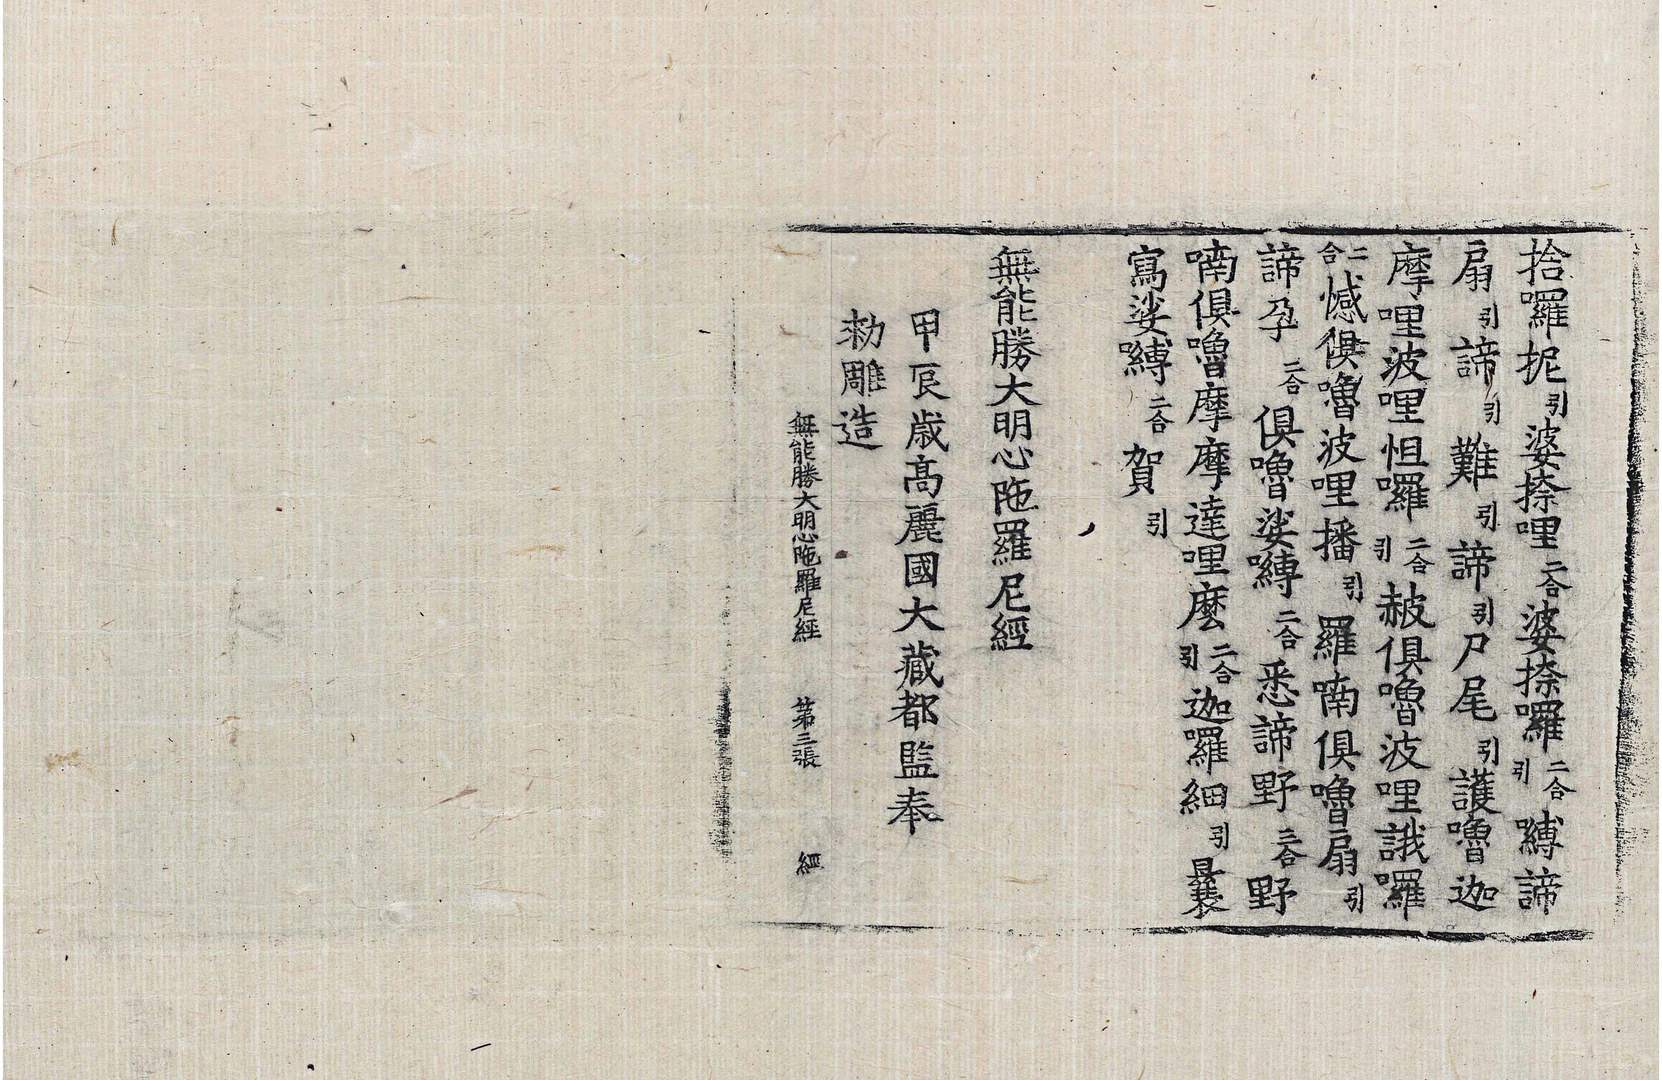 拾囉抳引婆捺哩二合婆捺囉二合引縛諦
扇引諦引難引諦引尸尾引護嚕迦
摩哩波哩怛囉二合引赦俱嚕波哩誐囉
二合憾俱嚕波哩播引羅喃俱嚕扇引
諦孕二合俱嚕娑縛二合悉諦野三合野
喃俱嚕摩摩達哩麽二合引迦囉細引曩
寫娑縛二合賀引
無能勝大明心陁羅尼經
甲辰歲高麗國大藏都監奉
勅雕造
無能勝大明心陁羅尼經 第三張 經